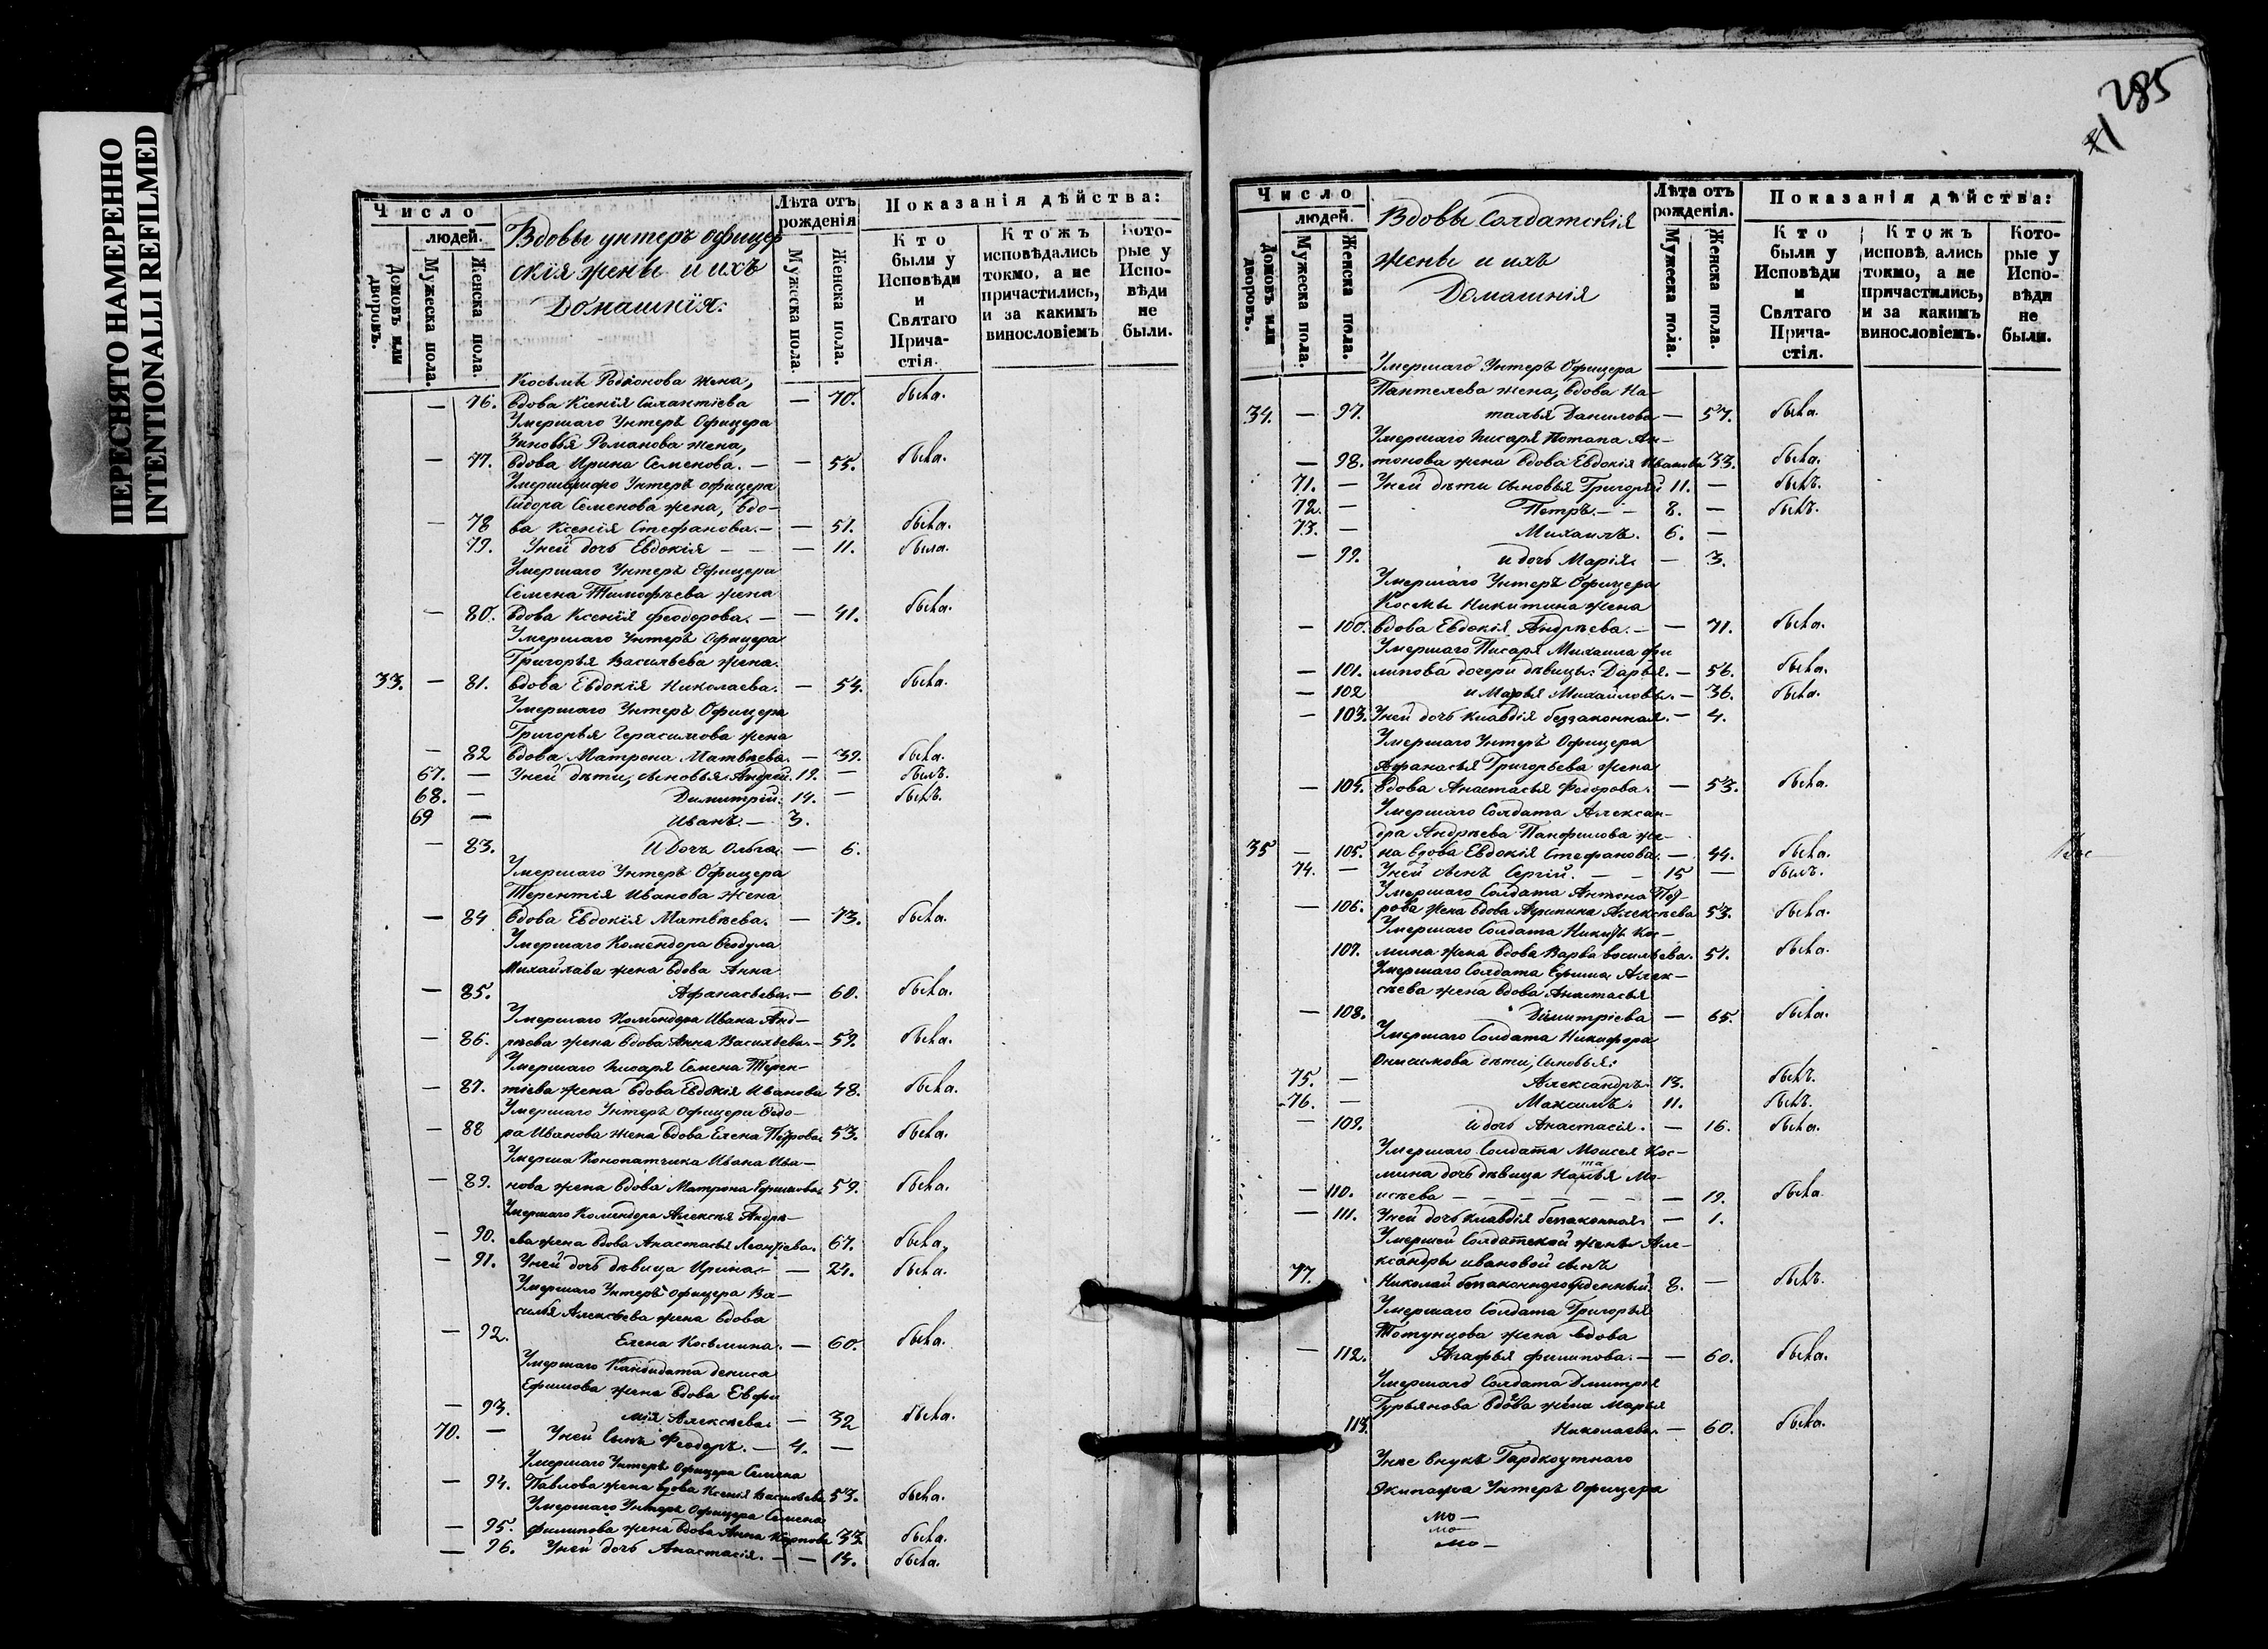 ПЕРЕСНЯТО НАМЕРЕННО
INTENTIONALLI REFILMED
Число
людей.
Домовъ или дворовъ.
Мужеска пола.
Женска пола.
Вдовы унтеръ офицер
скія жены и ихъ
Домашнія:
Лѣта отъ рожденія
Мужеска пола.
Женска пола.
Показанія дѣйства:
Кто были у Исповѣди и Святаго Прича-стія.
Ктожъ исповѣдались токмо, а не причастились, и за какимъ винословіемъ
Кото-рые у Испо-вѣди не были.
Косьмы Родіонова жена,
— 76. вдова Ксенія Силантіева — 70. была.
Умершаго Унтеръ Офицера
Зиновья Романова жена,
— 77. вдова Ирина Семенова. — — 55. была.
Умершаго Унтеръ офицера
Сидора Семенова жена, вдо-
— 78 ва Ксенія Стефанова. — — 51. была.
79. У ней дочь Евдокія — — — 11. была.
Умершаго Унтеръ Офицера
Семена Тимофѣева жена
— 80. вдова Ксенія Феодорова. — — 41. была.
Умершаго Унтеръ Офицера
Григорья Васильева жена.
33. — 81. вдова Евдокія Николаева. — 54. была.
Умершаго Унтеръ Офицера
Григорья Герасимова жена
— 82 вдова Матрона Матвѣева. — 39. была.
67. — У ней дѣти, сыновья Андрей. 19. — былъ.
68. — Димитрій. 14. — былъ.
69 — Иванъ. — 3.
— 83. И Дочь Ольга. — 6.
Умершаго Унтеръ Офицера
Терентія Иванова Жена
— 84 вдова Евдокія Матвѣева. — 73. была.
Умершаго Комендора Ѳеодула
Михайлава жена вдова Анна
— 85. Афанасьева. — 60. была.
Умершаго Комендора Ивана Анд-
— 86. рѣева жена вдова Анна Васильева. — 59. была.
Умершаго писаря Семена Терен-
— 87. тіева жена вдова Евдокія Иванова 48. была.
Умершаго Унтеръ Офицера Ѳедо-
— 88 ра Иванова жена вдова Елена Петрова. 53. была.
Умерша Конопатчика Ивана Ива-
— 89. нова жена вдова Матрона Ефимова. 59. была.
Умершаго Комендора Алексѣя Андрѣ-
— 90. ева жена вдова Анастасья Леонтіева. 67. была.
— 91. У ней дочь дѣвица Ирина — — 24. была.
Умершаго Унтеръ офицера Ва-
силья Алексѣева жена вдова
— 92. Елена Косьмина. — 60. была.
Умершаго Кандидата дениса
Ефимова жена вдова Евфи
— 93. мія Алексѣева. — 32 была.
70. — У ней Сынъ Феодоръ. — 4. —
Умершаго Унтеръ Офицера Семена
— 94. Павлова жена вдова Ксенія Васильева 53. была.
Умершаго Унтеръ Офицера Семена
— 95. филипова жена вдова Анна Карпова 33. была.
— 96. У ней дочь Анастасія. — — 14. была.
285
Число
людей.
Домовъ или дворовъ.
Мужеска пола.
Женска пола.
Вдовы Солдатскія
жены и ихъ
Домашнія
Лѣта отъ рожденія.
Мужеска пола.
Женска пола.
Показанія дѣйства:
Кто были у Исповѣди и Святаго Прича-стія.
Ктожъ исповѣ,ались токмо, а не причастились, и за какимъ винословіемъ.
Кото-рые у Испо-вѣди не были.
Умершаго Унтеръ Офицера
Пантелева жена, вдова На-
34. — 97. талья Данилова — 57. была.
Умершаго писаря Потапа Ан-
— 98. тонова жена вдова Евдокія Иванова 33. была.
71. — У ней дѣти сыновья Григорій 11. — былъ.
72. — Петръ. — — 8. — былъ.
73. — Михаилъ. 6. —
— 99. и дочь Марія. — 3.
Умершаго Унтеръ Офицера
Косьмы Никитина жена
— 100. вдова Евдокія Андрѣева. — — 71. была.
Умершаго Писаря Михаила фи
— 101. липова дочери дѣвицы: Дарья. — 56. была.
— 102 и Марья Михайловы. — 36. была.
— 103. У ней дочь клавдія беззаконная. — 4.
Умершаго Унтеръ Офицера
Афанасья Григорьева жена
— 104. вдова Анастасья Федорова. — 53. была.
Умершаго Солдата Алексан-
дра Андрѣева Панфилова же-
35 — 105. на вдова Евдокія Стефанова. — 44. была.
74. — У ней сынъ Сергій. — — 15 — былъ.
Умершаго Солдата Антона Пет-
— 106. рова жена вдова Агрипина Алексѣева 53. была.
Умершаго Солдата Никиты Кос-
107. мина жена вдова Варва васильева. 51. была.
Умершаго Солдата Ефима Алек-
сѣева жена вдова Анастасья
— 108. Димитріева — 65. была.
Умершаго Солдата Никифора
Онисимова дѣти, Сыновья:
75. — Александръ. 13. былъ.
76. — Максимъ. 11. былъ.
— 109. и дочь Анастасія. — 16. была.
Умершаго Солдата Моисея Кос-
мина дочь дѣвица Наталья Мо-
— 110. исѣева — — — — — 19. была
— 111. У ней дочь клавдія безаконная. — 1.
Умершей Солдатской жены Але-
ксандры ивановой сынъ
77. Николай безаконнорожденный. 8. — былъ.
Умершаго Солдата Григорья
Тотунцова жена вдова
— 112. Агафья филипова. — — 60. была.
Умершаго Солдата Дмитрія
Гурьянова вдова жена Марья
113. Николаева. — 60. была.
У нее внукъ Гардкоутнаго
Экипажа Унтеръ Офицера
мо —
мо —
мо —